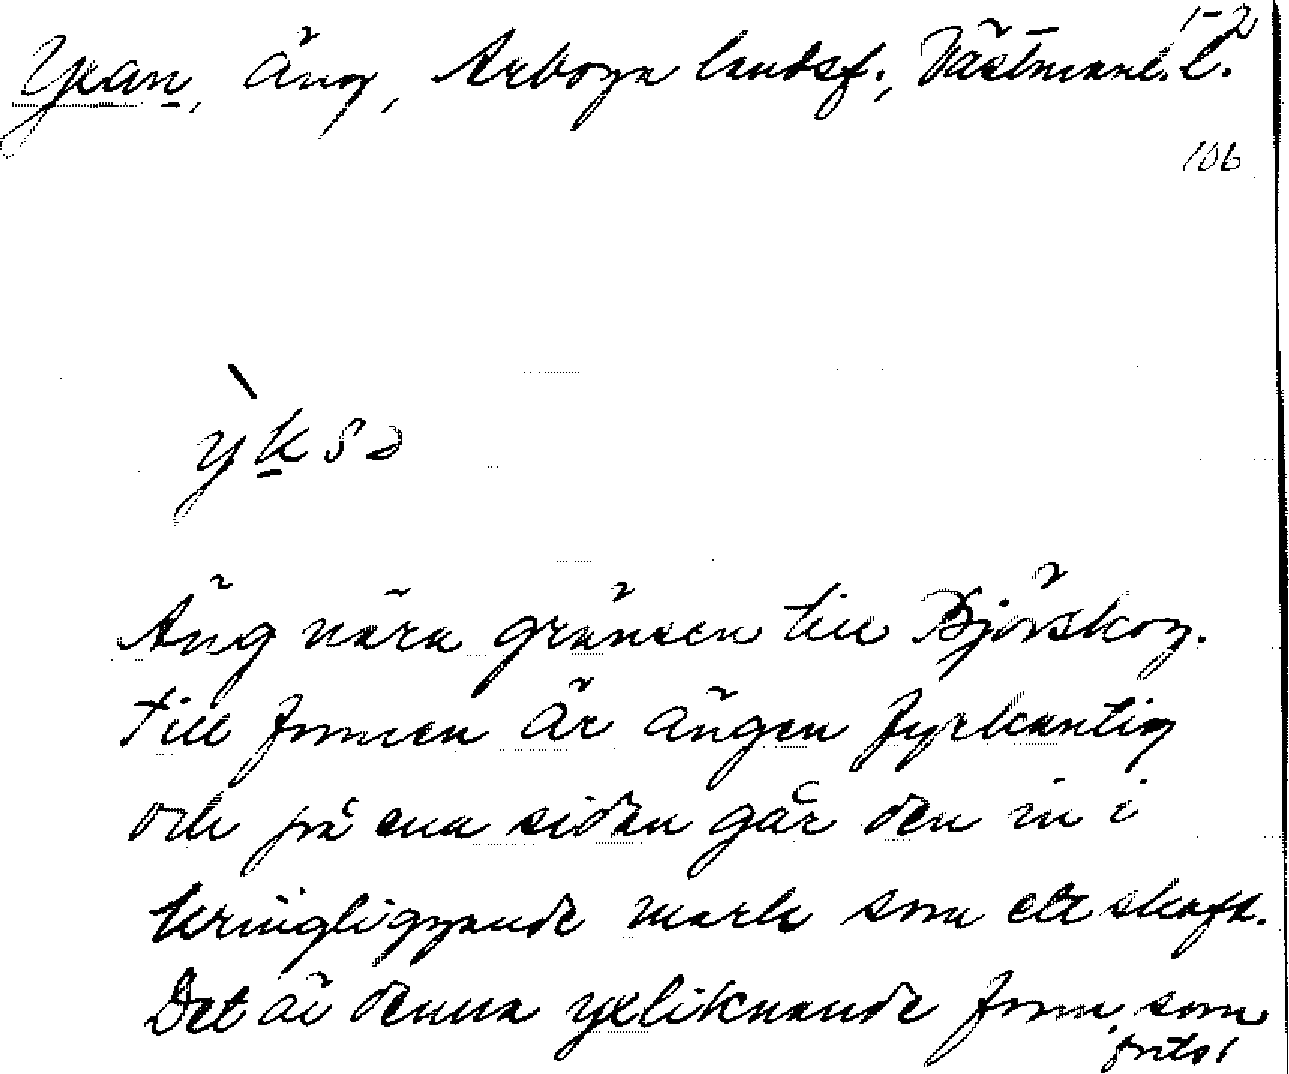 1-2
Yxan, äng, Arboga landsf., Västmanl. l.
106
ỳksə
Äng nära gränsen till Björskog.
Till formen är ängen fyrkantig
och på ena sidan går den in i
kringliggande mark som ett skaft.
Det är denna yxliknande form, som
forts!